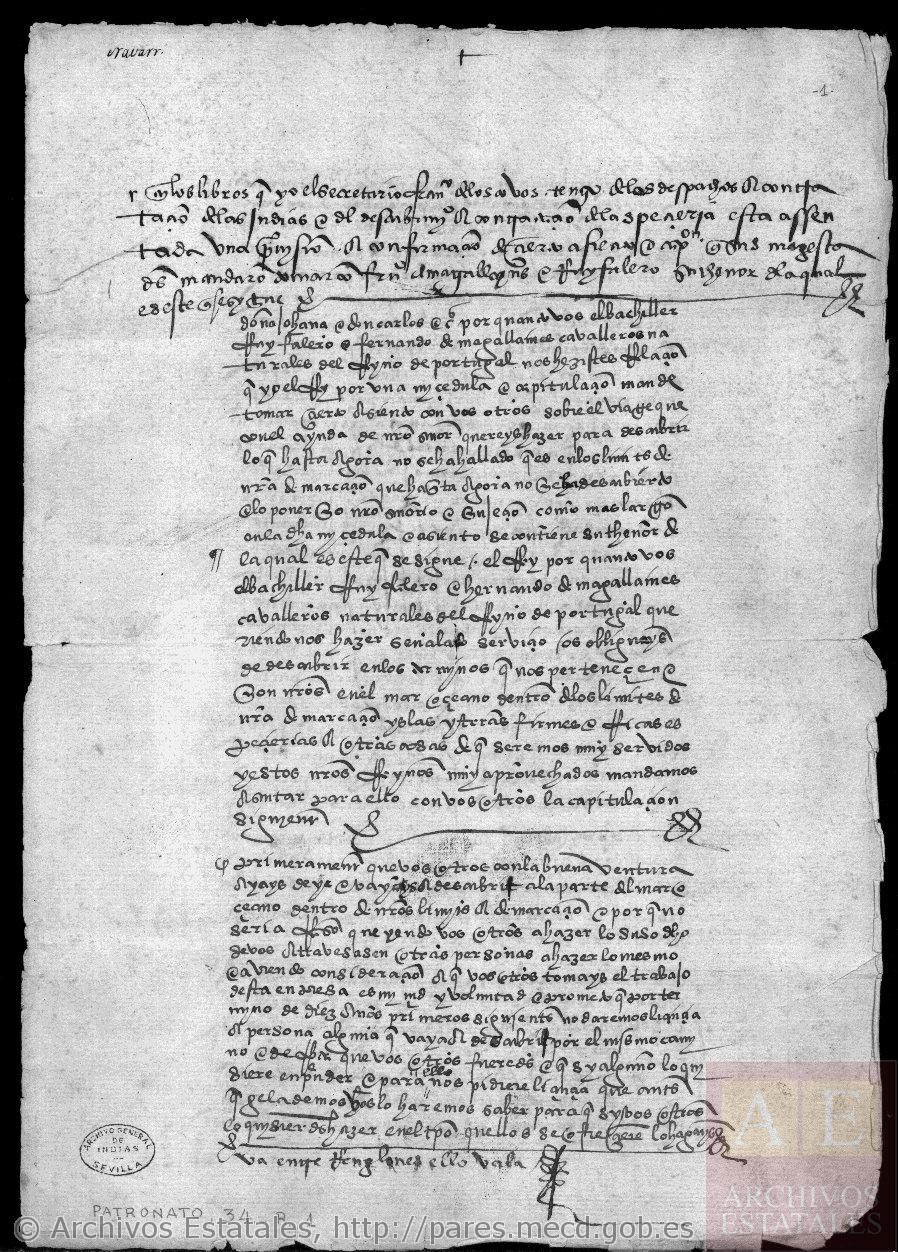 navarr.
-1-
En los libros q̃ yo el secretario fran^co de los covos tengo de los despachos de contra
taçiõ de las Indias e del descubrimy^o de contrataçiõ de la speçeria esta assen
tada una provisiõ de confirmaçiõ de çierto asiento e capo^n q̃ sus magestades
mandarõ tomar cõ fer^do de magallaÿnes e Ruy falero su thenor de la qual
es este q̃ se sygue
doña Johana e don carlos etc por quanto vos el bachiller
Ruy falero e fernando de magallaines cavalleros na
turales del Ryno de portugal nos hezistes Relaçõ
q̃ yo el Rey por una my çedula e capitulaçiõ mande
tomar çierto asiento con vos otros sobre el viage que
con el ayuda de nr̃o señor quereys hazer para descubrir
lo q̃ hasta agora no se ha hallado q̃ es en los limites de
nr̃a demarcaçiõ que hasta agora no se ha descubierto
e lo poner so nr̃o señorio e sujeçiõ como mas largo
en la dha my çedula e asiento se contiene su thenor de
la qual es este q̃ se sigue / . el Rey por quanto vos
el bachiller Ruy falero e hernando de magallaines
cavalleros naturales del Ryno de portugal que
riendo nos hazer señalado serviçio os obligays
de descubrir en los terminos q̃ nos perteneçen e
son nr̃os en el mar oçeano dentro de los limites de
nr̃a demarcaçiõ yslas y trr̃as firmes e Ricas es
peçerias e otras cosas de q̃ seremos muy servidos
y estos nr̃os Rynos muy aprovechados mandamos
asentar para ello con vos otros la capitulaçion
siguiente
primeramente que vos otros con la buena ventura
ayays de yr e vayays a descubrir a la parte del mar o
çeano dentro de nr̃os limites e demarcaçiõ e por q̃ no
seria Razõ que yendo vos otros a hazer lo suso dho
se vos atravesasen otras personas a hazer lo mesmo
e aviendo consideraçiõ a q̃ vos otros tomays el trabajo
desta enpresa es my m̃d y voluntad e prometo q̃ por ter
myno de diez años primeros siguientes no daremos liçençia
a persona alguna q̃ vaya a descubrir por el mismo cami
no e derrota que vos otros fueredes e q̃ sy alguno lo qui
siere enprender e para ello nos pidiere liçençia que antes
q̃ gela demos vos lo haremos saber para q̃ sy vos otros
lo quisieredes hazer en el tp̃o que ellos se ofreçiere lo hagays
va entre Renglones ello vala
ARCHIVO GENERAL
DE
INDIAS
SEVILLA
PATRONATO 34 R 1
© Archivos Estatales, http://pares.mecd.gob.es
AE
ARCHIVOS
ESTATALES